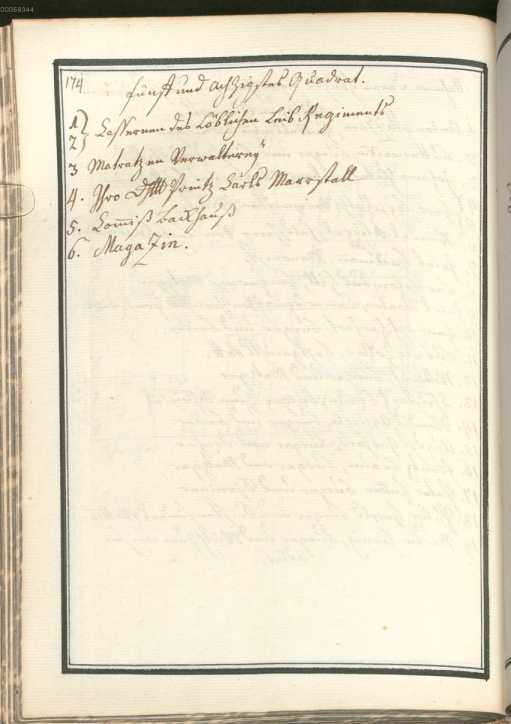 00056344
174
Fünf und achtzigstes Quadrat.
1
2 } Cassernen des Löblichen Leib Regiments
3 Matratzen Verwalterey
4. Ihro Printz Carls Marrstall
5. Commiß Backhauß
6. Magazin.